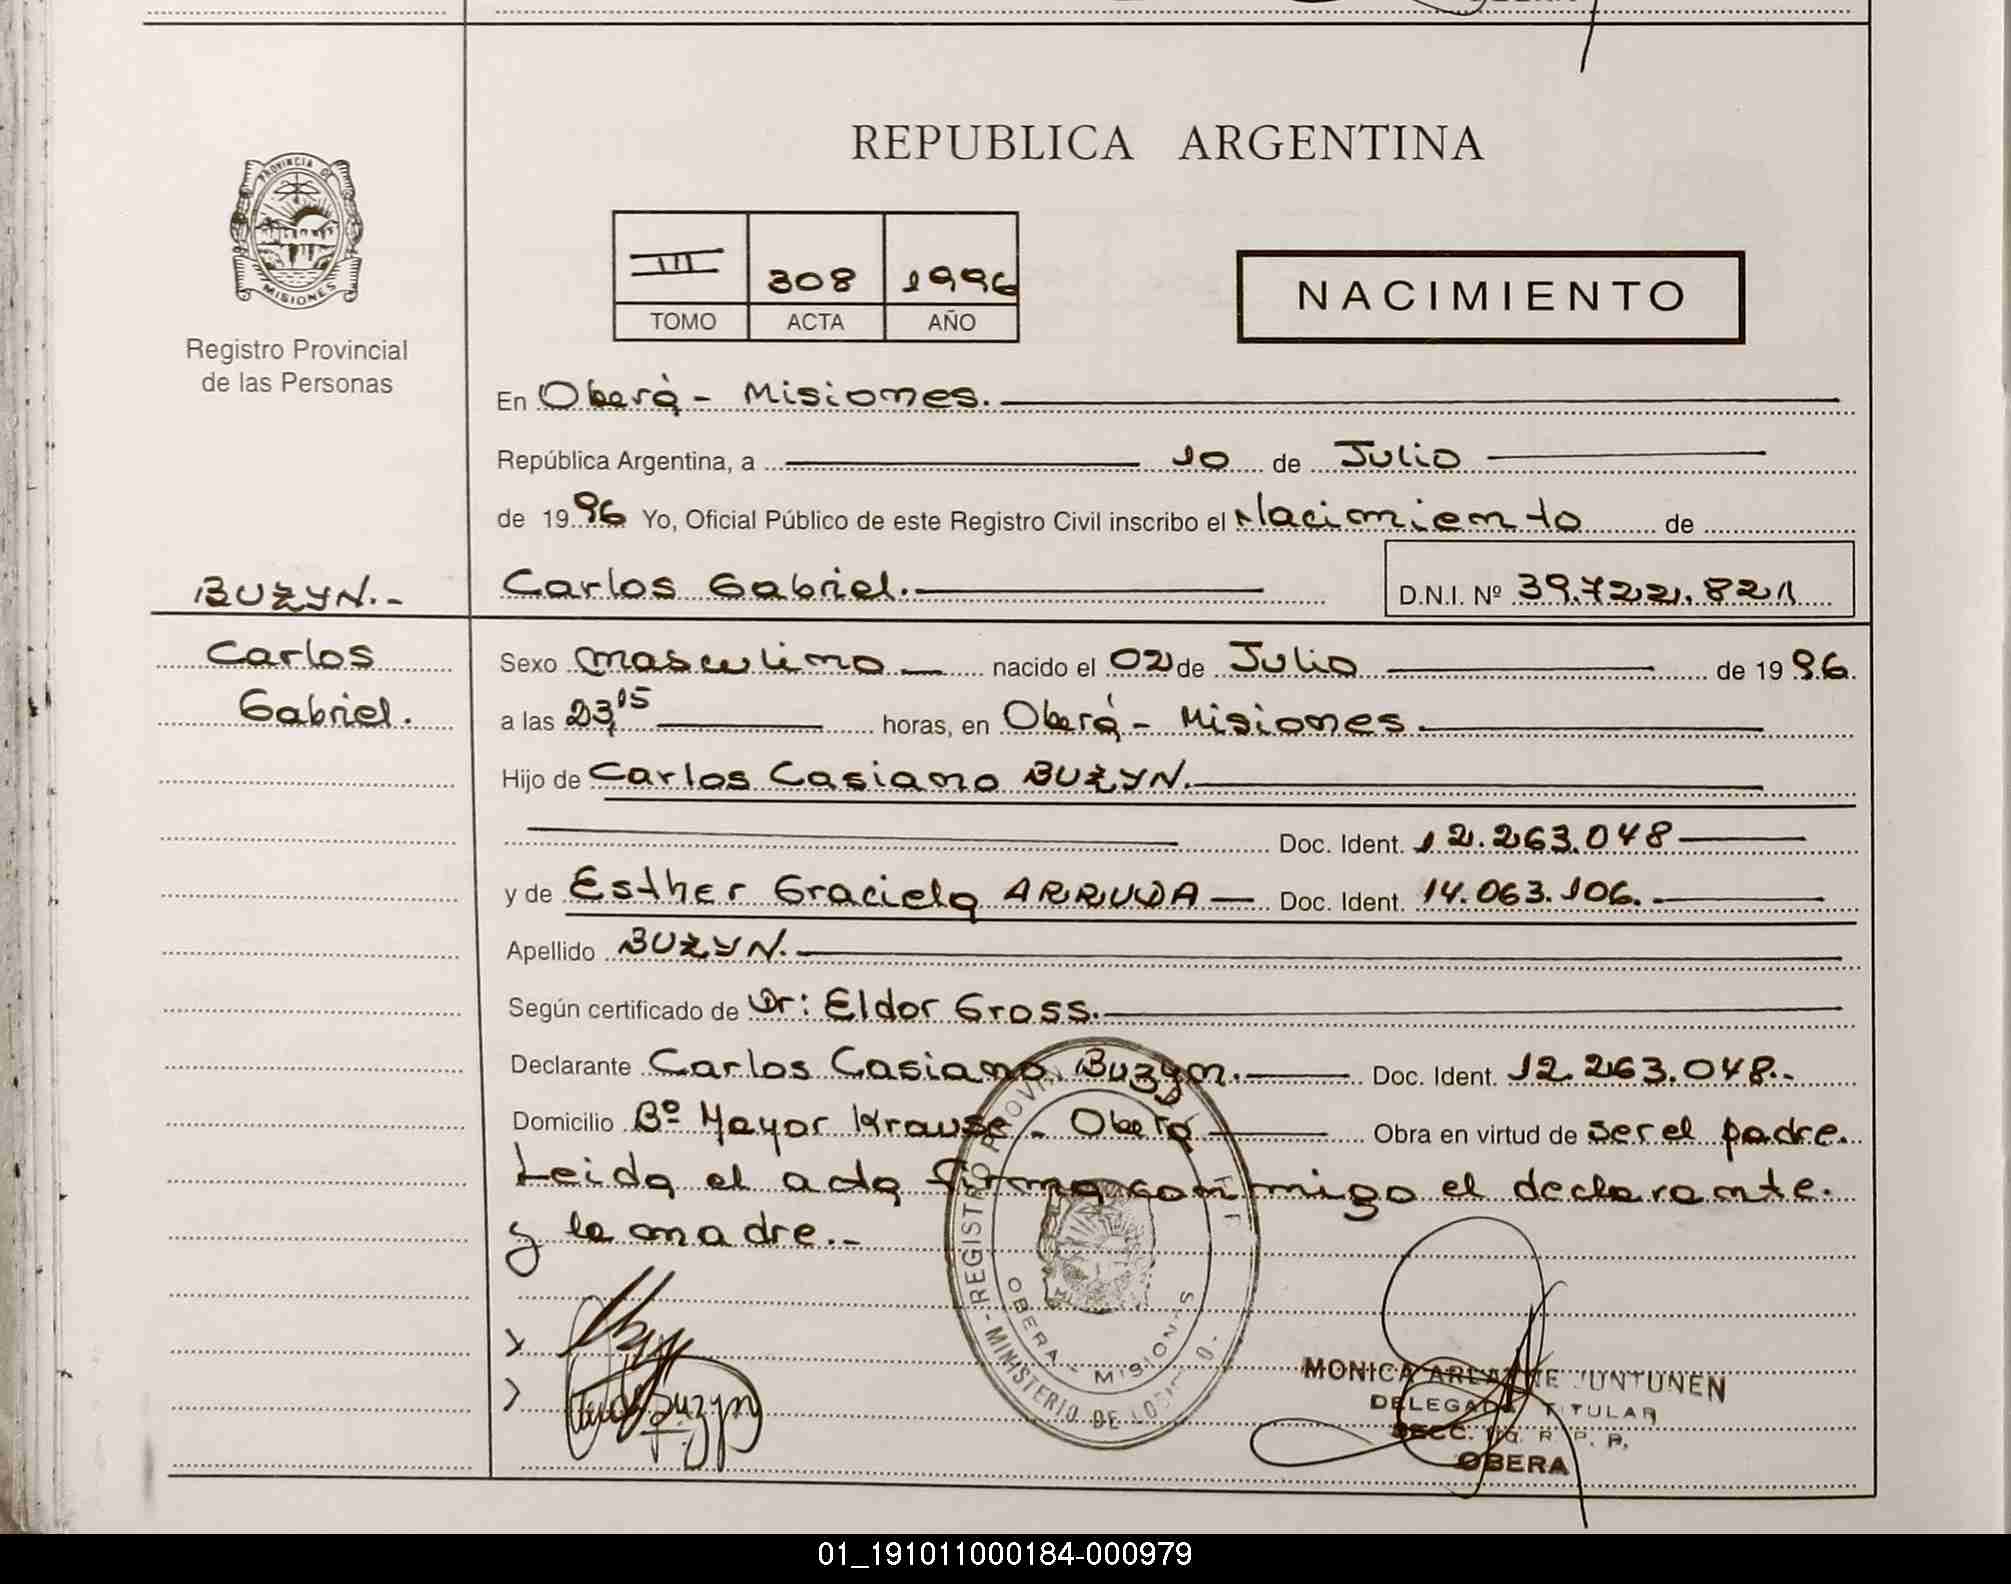 PROVINCIA DE
MISIONES
Registro Provincial
de las Personas
REPUBLICA ARGENTINA
III 308 1996
TOMO ACTA AÑO
NACIMIENTO
En Oberá - Misiones.
República Argentina, a 10 de Julio
de 1996 Yo, Oficial Público de este Registro Civil inscribo el Nacimiento de
BUZYN.- Carlos Gabriel. D.N.I. Nº 39.722.821
Carlos Sexo masculino nacido el 02 de Julio de 1996.
Gabriel. a las 23,15 horas, en Oberá - Misiones
Hijo de Carlos Casiano BUZYN.
Doc. Ident. 12.263.048
y de Esther Graciela ARRUDA Doc. Ident. 14.063.106.
Apellido BUZYN.
Según certificado de Dr: Eldor Gross.
Declarante Carlos Casiano Buzyn. Doc. Ident. 12.263.048.-
Domicilio Bº Mayor Krause - Oberá Obra en virtud de ser el padre.
Leida el acta firma conmigo el declarante.
y la madre.-
REGISTRO PROVIN
OBERA - MISIONES
MINISTERIO DE
Buzyn
MONICA ARLANNE JUNTUNEN
DELEGADA TITULAR
SECC. R. P. P.
OBERA
01_191011000184-000979